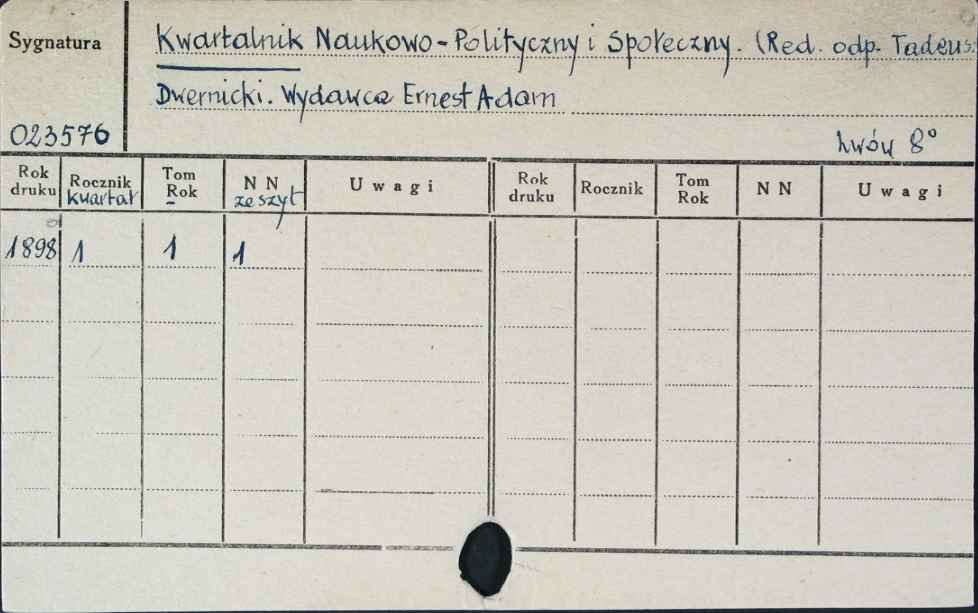 Sygnatura
Kwartalnik Naukowo-Polityczny i Społeczny. (Red. odp. Tadeusz
Dwernicki. Wydawca Ernest Adam
023576
Lwów 8°
Rok druku Rocznik kwartał Tom Rok NN zeszyt Uwagi Rok druku Rocznik Tom Rok NN Uwagi
1898 1 1 1